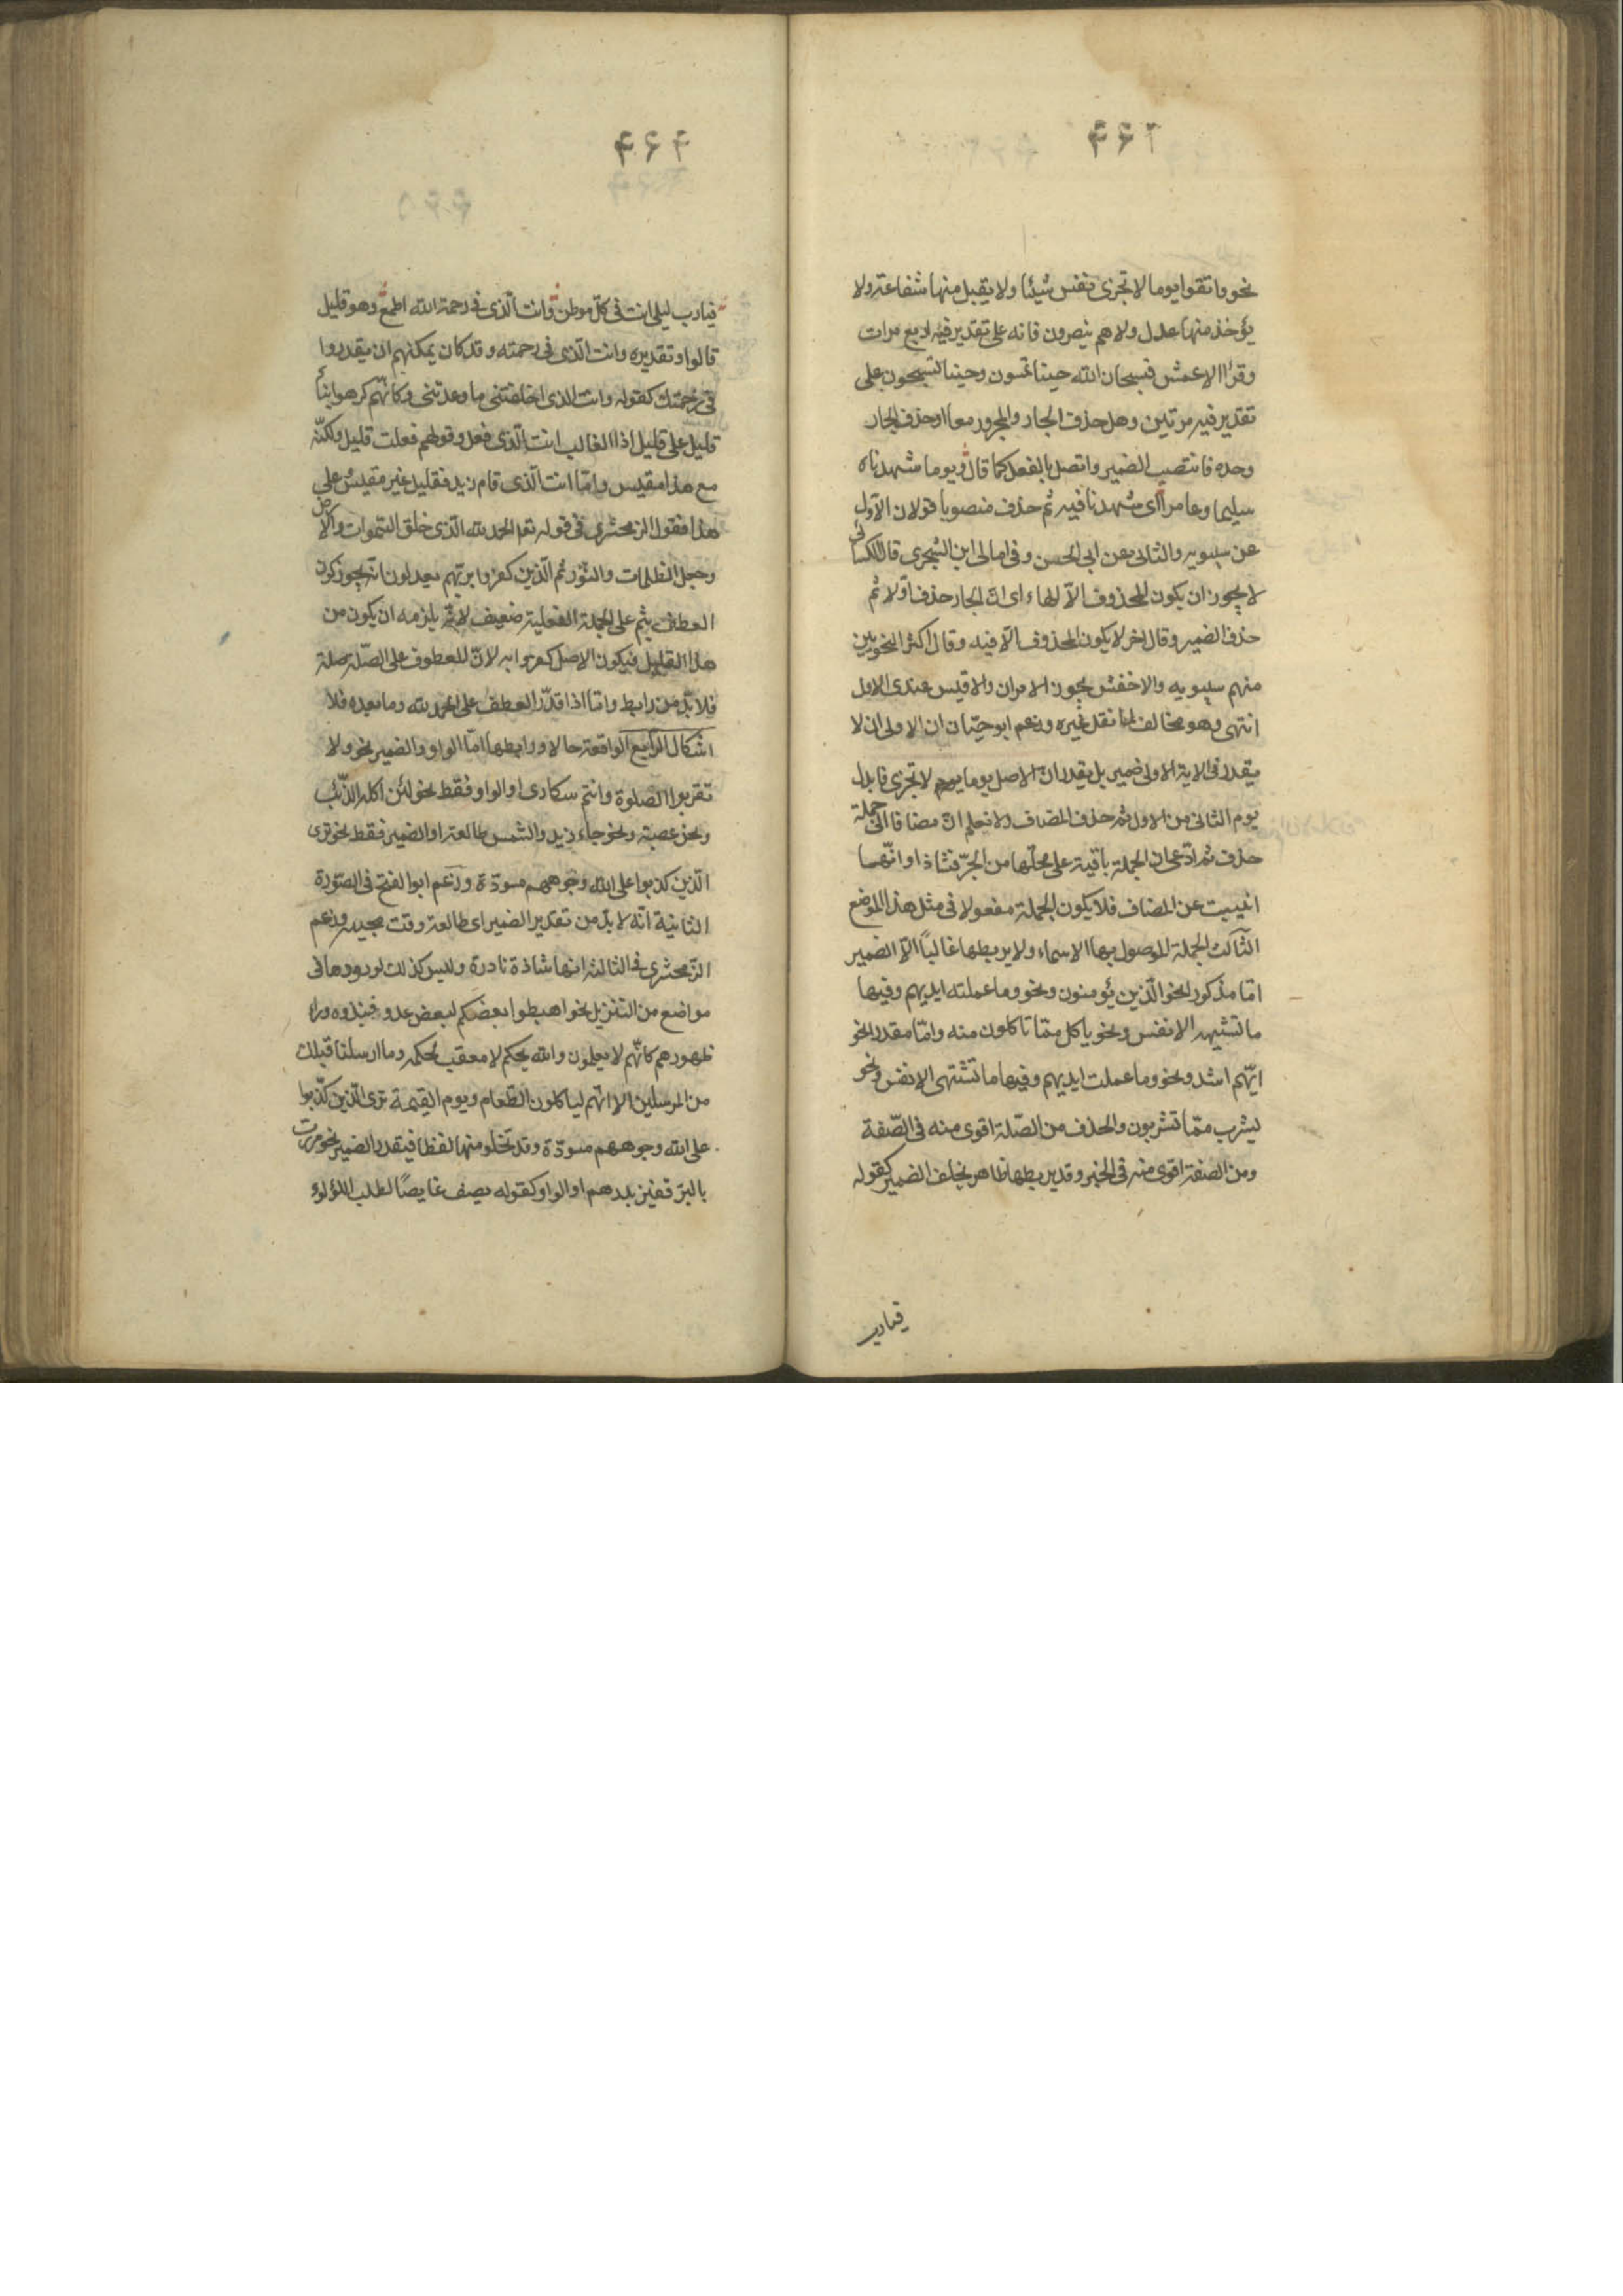 ۴۶۳
نحو واتقوا يوما لا تجزى نفس شيئا ولا يقبل منها شفاعة ولا
يؤخذ منها عدل ولا هم ينصرون فانه على تقدير فيه اربع مرات
وقرا الاعمش فسبحان الله حينا تمسون وحينا تسبحون على
تقدير فيه مرتين وهل حذف الجار والمجرور معا او حذف الجار
وحده فانتصب الضمير واتصل بالفعل كما قال ويوما شهدناه
سليما وعامرا اى شهدنا فيه ثم حذف منصوبا قولان الاول
عن سيبويه والثانى عن ابى الحسن وفى امالى ابن الشجرى قال الكسائى
لا يجوز ان يكون المحذوف الا الهاء اى ان الجار حذف اولا ثم
حذف الضمير وقال اخر لا يكون المحذوف الا فيه وقال اكثر النحويين
منهم سيبويه والاخفش يجوز الامران والاقيس عندى الاول
انتهى وهو مخالف لما نقل غيره وزعم ابو حيان ان الاولى ان لا
يقدر فى الاية الاولى ضمير بل يقدر ان الاصل يوما يوم لا تجزى فابدل
يوم الثانى من الاول ثم حذف المضاف ولا نعلم ان مضافا الى جملة
حذف ثم ادعى ان الجملة باقية على محلها من الجر فشاذ او انها
انيبت عن المضاف فلا يكون الجملة مفعولا فى مثل هذا الموضع
الثالث الجملة الموصول بها الاسماء ولا يربطها غالبا الا الضمير
اما مذكور نحو الذين يؤمنون ونحو وما عملته ايديهم وفيها
ما تشتهيه الانفس ونحو ياكل مما تاكلون منه واما مقدر نحو
ايهم اشد ونحو وما عملت ايديهم وفيها ما تشتهى الانفس ونحو
يشرب مما تشربون والحذف من الصلة اقوى منه فى الصفة
ومن الصفة اقوى منه فى الخبر وقد يربطها ظاهر يخلف الضمير كقوله
فيارب
۴۶۴
فيارب ليلى انت فى كل موطن وانت الذى فى رحمة الله اطمع وهو قليل
قالوا وتقديره وانت الذى فى رحمته وقد كان يمكنهم ان يقدروا
فى رحمتك كقوله وانت الذى اخلفتنى ما وعدتنى وكانهم كرهوا بناء
قليل على قليل اذ الغالب انت الذى فعل وقولهم فعلت قليل ولكنه
مع هذا مقيس واما انت الذى قام زيد فقليل غير مقيس وعلى
هذا فقول الزمخشرى فى قوله تعم الحمد لله الذى خلق السموات والارض
وجعل الظلمات والنور ثم الذين كفروا بربهم يعدلون انه يجوز كون
العطف بثم على الجملة الفعلية ضعيف لانه يلزمه ان يكون من
هذا القليل فيكون الاصل كفروا به لان المعطوف على الصلة صلة
فلا بد من رابط واما اذا قدر العطف على الحمد لله وما بعده فلا
اشكال الرابع الواقعة حالا ورابطها اما الواو والضمير نحو ولا
تقربوا الصلوة وانتم سكارى او الواو فقط نحو لئن اكله الذئب
ونحن عصبة ونحو جاء زيد والشمس طالعة او الضمير فقط نحو ترى
الذين كذبوا على الله وجوههم مسودة وزعم ابو الفتح فى الصورة
الثانية انه لا بد من تقدير الضمير اى طالعة وقت مجيئه وزعم
الزمخشرى فى الثالثة انها شاذة نادرة وليس كذلك لورودها فى
مواضع من التنزيل نحو اهبطوا بعضكم لبعض عدو فنبذوه وراء
ظهورهم كانهم لا يعلمون والله يحكم لا معقب لحكمه وما ارسلنا قبلك
من المرسلين الا انهم لياكلون الطعام ويوم القيمة ترى الذين كذبوا
على الله وجوههم مسودة وقد تخلو منهما لفظا فيقدر الضمير نحو مررت
بالبر قفيز بدرهم او الواو كقوله يصف غايصا لطلب اللؤلؤ